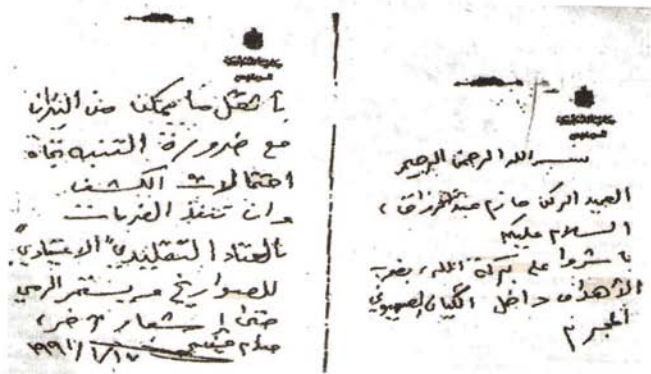 بسم الله الرحمن الرحيم
العميد الركن حازم عبدالرزاق ،
السلام عليكم
باشروا على بركة الله ، بضرب
الأهداف داخل الكيان الصهيوني
المجرم
بأثقل ما يمكن من النيران
مع ضرورة التنبه تجاه
احتمالات الكشف
وان تنفذ الضربات
بالعتاد التقليدي "الاعتيادي"
للصواريخ ويستمر الرمي
حتى إشعار آخر ،
صدام حسين
١٩٩١/١/١٧